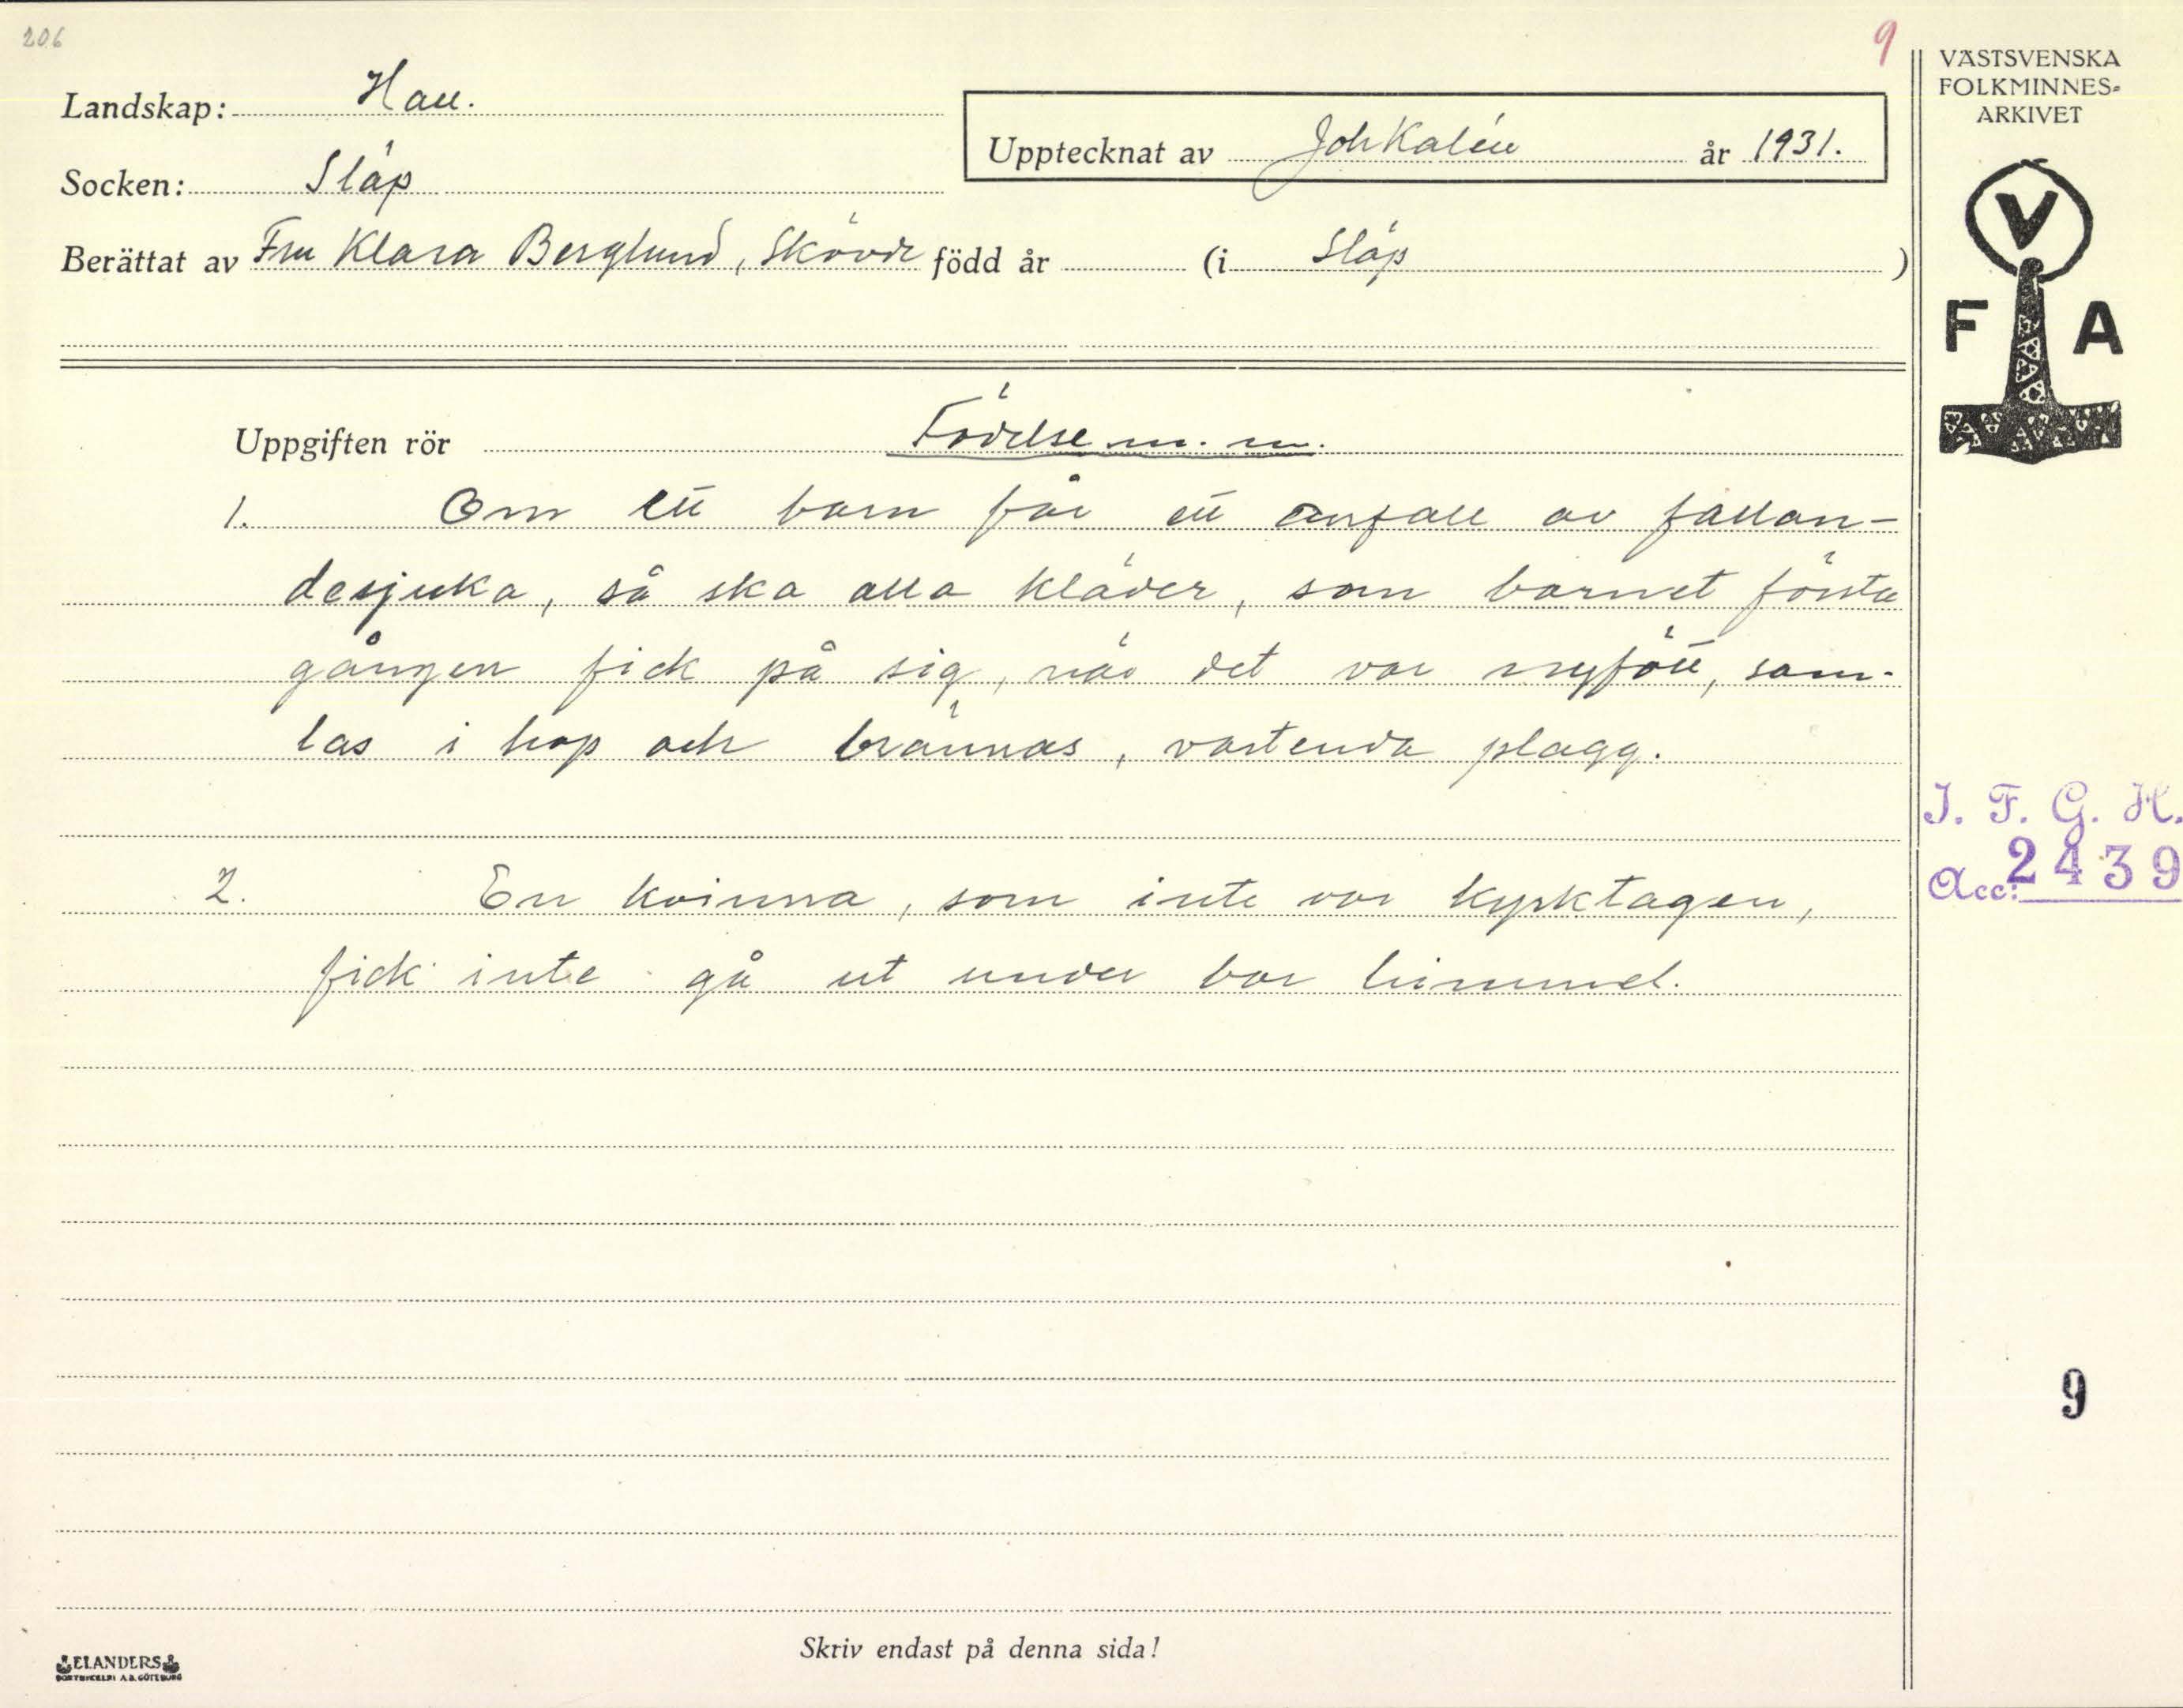 206
9
VÄSTSVENSKA
FOLKMINNES-
ARKIVET
Landskap: Hall.
Upptecknat av Joh Kalén år 1931.
Socken: Släp
Berättat av Fru Klara Berglund, Skövde född år (i Släp )
V
F A
Uppgiften rör Födelse m. m.
1. Om ett barn får ett anfall av fallan-
desjuka, så ska alla kläder, som barnet första
gången fick på sig, när det var nyfött, sam-
las i hop och brännas, vartenda plagg.
I. F. G. H.
Acc: 2439
2. En kvinna, som inte var kyrktagen,
fick inte gå ut under bar himmel.
9
Skriv endast på denna sida!
ELANDERS
BOKTRYCKERI A.B. GÖTEBORG